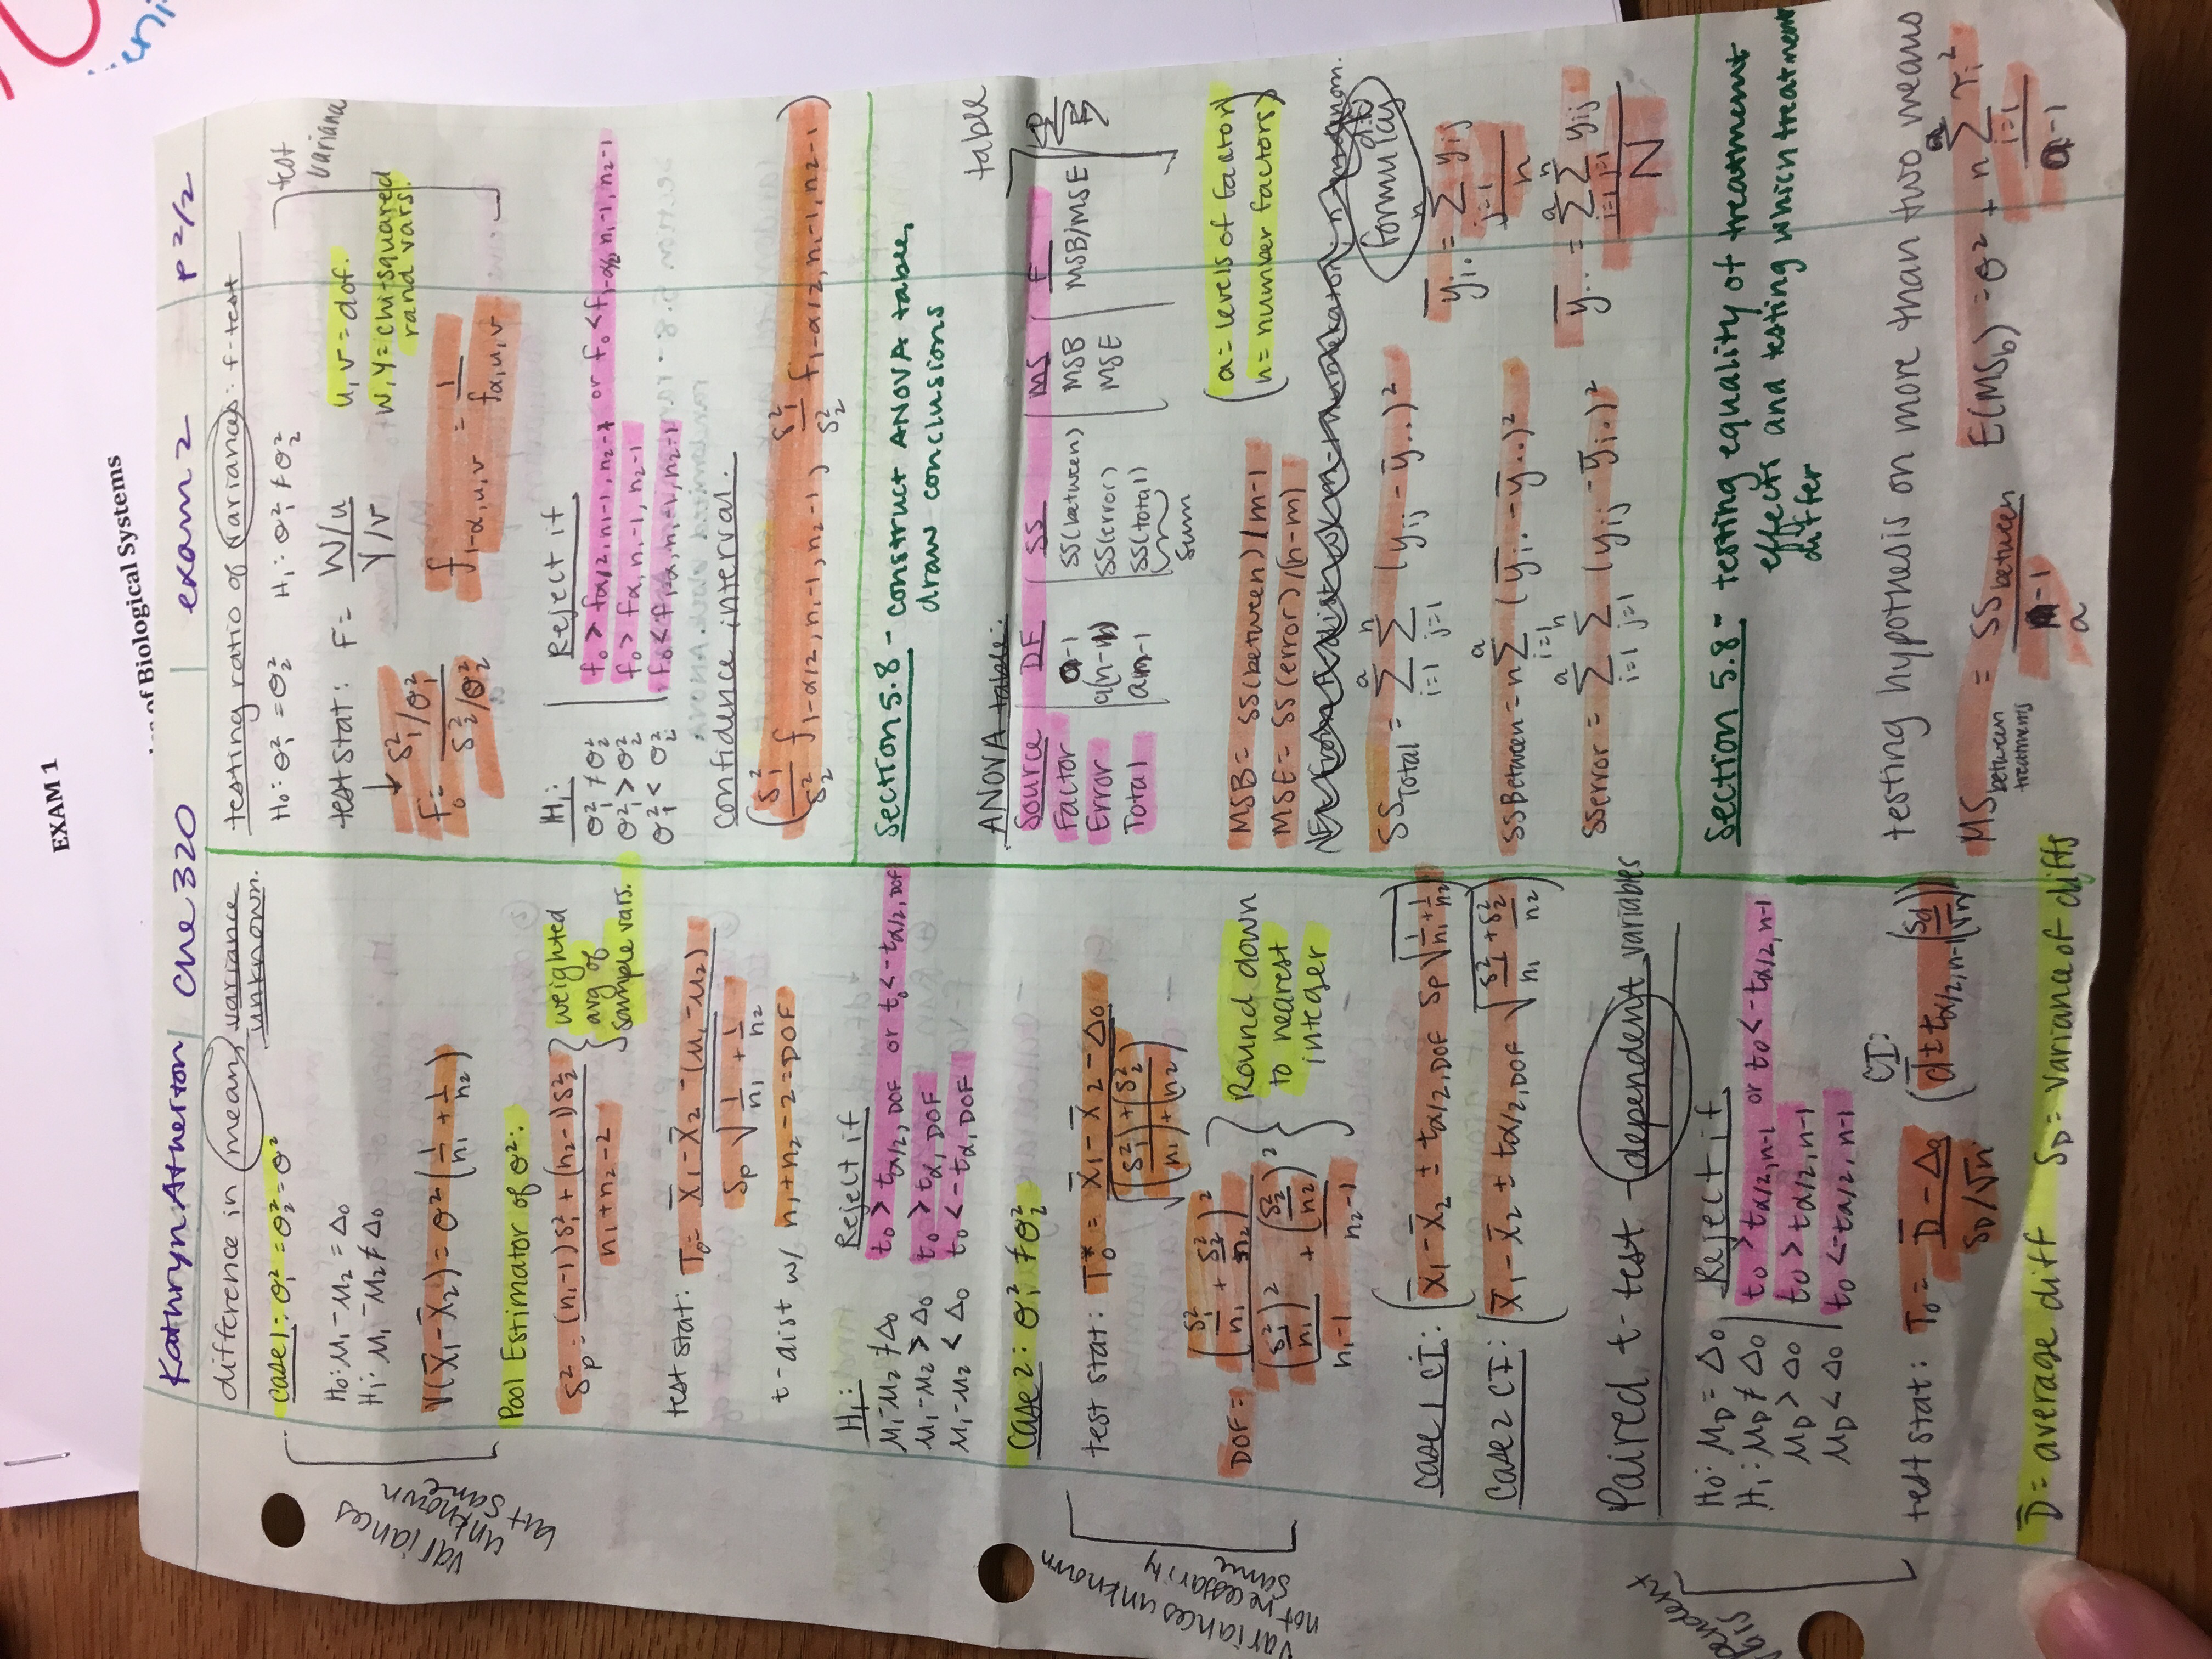 EXAM 1
of Biological Systems
Kathryn Atherton | Che 320 | exam 2 p 2/2
difference in mean, variance unknown.
case 1: σ₁² = σ₂² = σ²
H₀: μ₁ - μ₂ = Δ₀
H₁: μ₁ - μ₂ ≠ Δ₀
V(X̄₁ - X̄₂) = σ² (1/n₁ + 1/n₂)
variances unknown but same
Pool Estimator of σ²:
S²p = (n₁-1)S₁² + (n₂-1)S₂² / n₁+n₂-2 } weighted avg of sample vars.
test stat: T₀ = X̄₁ - X̄₂ - (μ₁ - μ₂) / Sp √(1/n₁ + 1/n₂)
t-dist w/ n₁+n₂-2 = DOF
H₁: Reject if
μ₁-μ₂ ≠ Δ₀ t₀ > tα/2, DOF or t₀ < -tα/2, DOF
μ₁-μ₂ > Δ₀ t₀ > tα, DOF
μ₁-μ₂ < Δ₀ t₀ < -tα, DOF
case 2: σ₁² ≠ σ₂²
test stat: T₀* = X̄₁ - X̄₂ - Δ₀ / √((S₁²/n₁) + (S₂²/n₂))
variances unknown not necessarily same
DOF = (S₁²/n₁ + S₂²/n₂)² / (S₁²/n₁)²/n₁-1 + (S₂²/n₂)²/n₂-1 } Round down to nearest integer
case 1 CI: (X̄₁ - X̄₂ ± tα/2, DOF Sp √(1/n₁ + 1/n₂))
case 2 CI: (X̄₁ - X̄₂ ± tα/2, DOF √(S₁²/n₁ + S₂²/n₂))
Paired t-test - dependent variables
H₀: μD = Δ₀ Reject if
H₁: μD ≠ Δ₀ t₀ > tα/2, n-1 or t₀ < -tα/2, n-1
μD > Δ₀ t₀ > tα/2, n-1
μD < Δ₀ t₀ < -tα/2, n-1
test stat: T₀ = D̄ - Δ₀ / SD/√n
CI: (d̄ ± tα/2, n-1 (Sd/√n))
D̄ = average diff SD = variance of diffs
testing ratio of variances: f-test
H₀: σ₁² = σ₂² H₁: σ₁² ≠ σ₂²
test variance
test stat: F = W/u / Y/v
u, v = dof.
W, Y = chi-squared rand vars.
F₀ = S₁²/σ₁² / S₂²/σ₂²
f1-α, u, v = 1 / fα, u, v
H₁: Reject if
σ₁² ≠ σ₂² f₀ > fα/2, n₁-1, n₂-1 or f₀ < f1-α/2, n₁-1, n₂-1
σ₁² > σ₂² f₀ > fα, n₁-1, n₂-1
σ₁² < σ₂² f₀ < f1-α, n₁-1, n₂-1
confidence interval.
(S₁²/S₂² f1-α/2, n₁-1, n₂-1, S₁²/S₂² f1-α/2, n₁-1, n₂-1)
Section 5.8 - construct ANOVA table,
draw conclusions
ANOVA table:
table
Source DF SS MS F
Factor a-1 SS(between) MSB MSB/MSE
Error SS(error) MSE
Total SS(total)
sum
MSB = SS(between)/m-1
MSE = SS(error)/(n-m)
(a = levels of factor
n = number factors)
formulas
SSTotal = Σᵃi=1 Σⁿj=1 (yij - ȳ..)²
ȳi. = Σⁿj=1 yij / n
SSBetween = n Σᵃi=1 (ȳi. - ȳ..)²
ȳ.. = Σᵃi=1 Σⁿj=1 yij / N
SSerror = Σᵃi=1 Σⁿj=1 (yij - ȳi.)²
Section 5.8 - testing equality of treatment
effects and testing which treatment
differ
testing hypothesis on more than two means
MS between treatments = SS between / a-1
E(MSb) = σ² + n Σᵃi=1 τi² / a-1